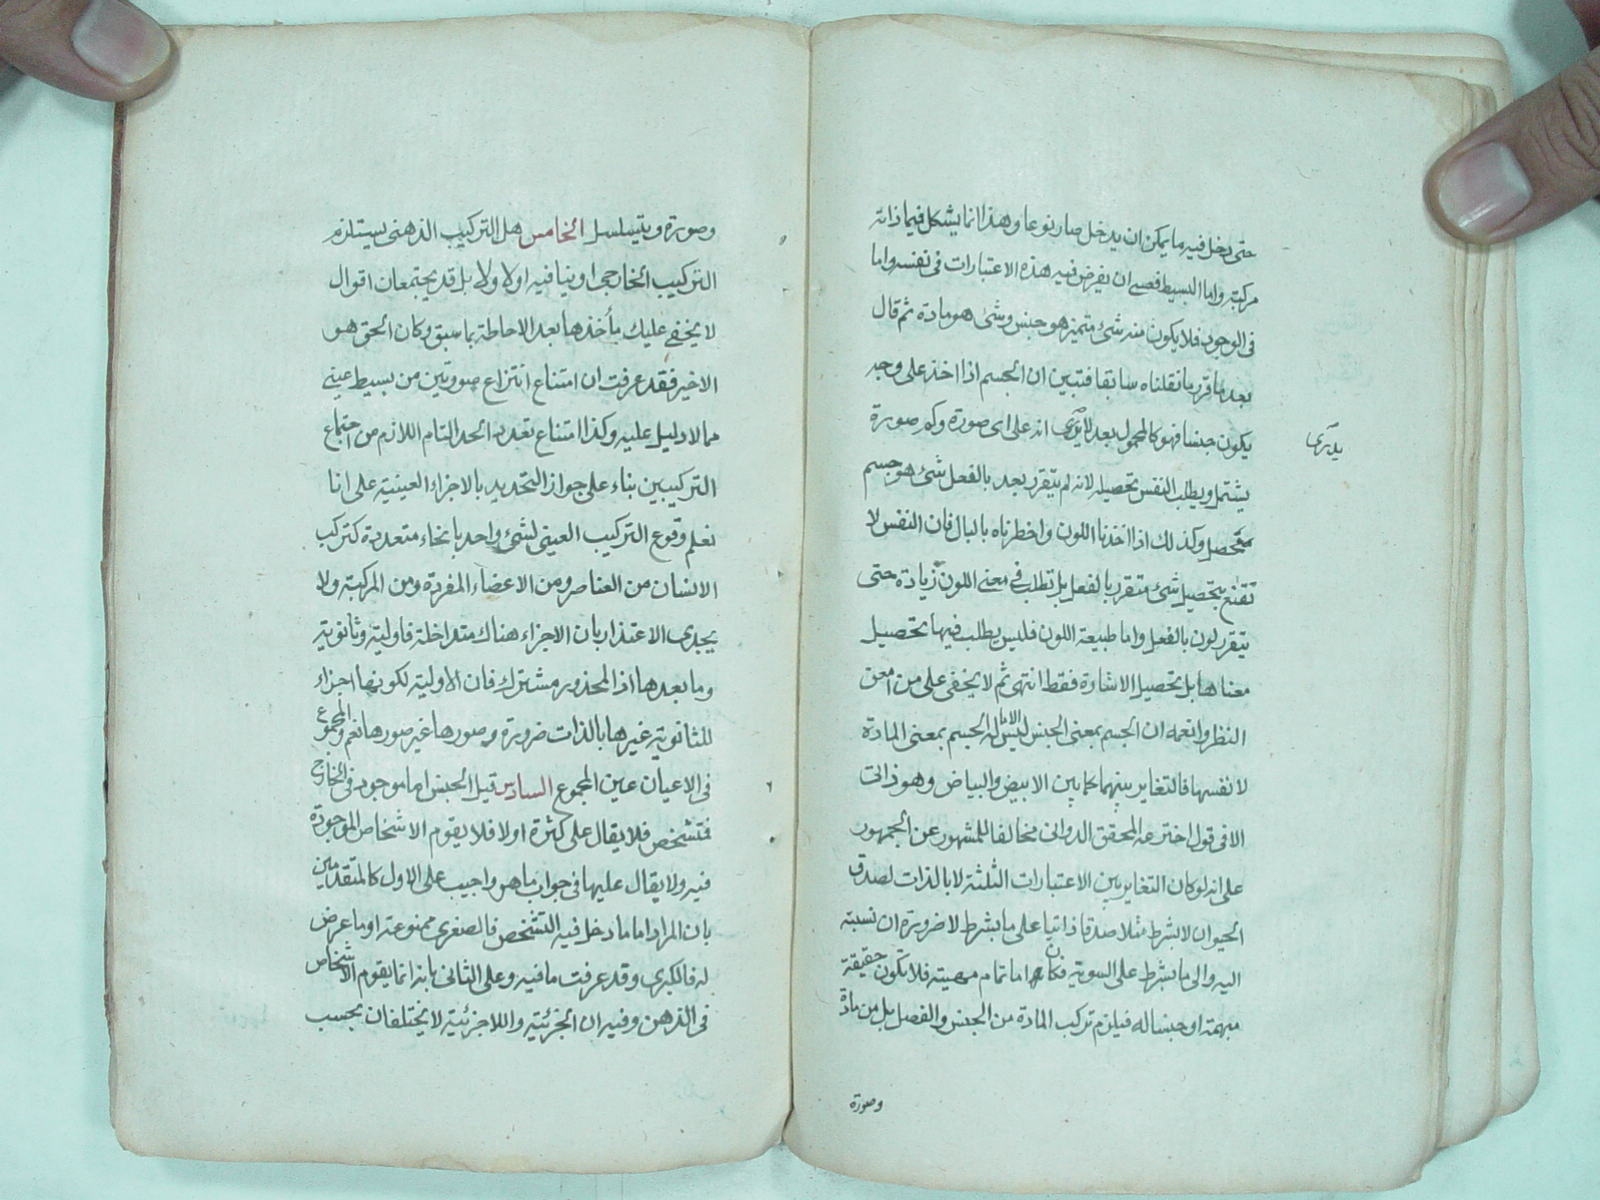 حتى دخل فيه ما يمكن ان يدخل صار نوعا وهذا انما يشكل فيما ذاته
مركبة واما البسيط فعسى ان يفرض فيه هذه الاعتبارات فى نفسه واما
فى الوجود فلا يكون منه شئ متميز هو جنس وشئ هو مادة ثم قال
بعد ما قرر ما نقلناه سابقا فتبين ان الجسم اذا اخذ على وجه
يكون جنسا فهو كالمجهول بعد لا يدرى انه على اى صورة وكم صورة
يدرى
يشتمل ويطلب النفس تحصيله لانه لم يتقرر بعد بالفعل شئ هو جسم
متحصل وكذلك اذا اخذنا اللون واخطرناه بالبال فان النفس لا
تقنع بتحصيل شئ متقرر بالفعل بل تطلب فى معنى اللون زيادة حتى
يتقرر لون بالفعل واما طبيعة اللون فليس يطلب فيها تحصيل
معناها بل تحصيل الاشارة فقط انتهى ثم لا يخفى على من امعن
النظر وانعمه ان الجسم بمعنى الجنس ليس الا الجسم بمعنى المادة
لا نفسها فالتغاير بينهما كما بين الابيض والبياض وهو ذاتى
الا فى قول اخترعه المحقق الدوانى مخالفا للمشهور عن الجمهور
على انه لو كان التغاير بين الاعتبارات الثلثة لا بالذات لصدق
الحيوان لا بشرط مثلا صدقا ذاتيا على ما بشرط لا ضرورة ان نسبته
اليه والى ما بشرط على السوية فكان اما تمام مهيته فلا يكون حقيقة
مبهمة او جنسا له فيلزم تركب المادة من الجنس والفصل بل من مادة
وصورة
وصورة ويتسلسل الخامس هل التركيب الذهنى يستلزم
التركيب الخارجى او ينافيه اولا ولا بل قد يجتمعان اقوال
لا يخفى عليك مأخذها بعد الاحاطة بما سبق وكان الحق هو
الاخير فقد عرفت ان امتناع انتزاع صورتين من بسيط عينى
مما لا دليل عليه وكذا امتناع تعدد الحد التام اللازم من اجتماع
التركيبين بناء على جواز التحديد بالاجزاء العينية على انا
نعلم وقوع التركيب العينى لشئ واحد بانحاء متعددة كتركب
الانسان من العناصر ومن الاعضاء المفردة ومن المركبة ولا
يجدى الاعتذار بان الاجزاء هناك متداخلة فاولية وثانوية
وما بعدها اذ المحذور مشترك فان الاولية لكونها اجزاء
للثانوية غيرها بالذات ضرورة وصورها غير صورها نعم والمجموع
فى الاعيان عين المجموع السادس قيل الجنس اما موجود فى الخارج
فمتشخص فلا يقال على كثرة اولا فلا يقوم الاشخاص الموجودة
فيه ولا يقال عليها فى جواب ما هو واجيب على الاول كالمتقدمين
بان المراد اما ما دخل فيه التشخص فالصغرى ممنوعة او ما عرض
له فالكبرى وقد عرفت ما فيه وعلى الثانى بانه انما يقوم الاشخاص
فى الذهن وفيه ان الجزئية واللاجزئية لا يختلفان بحسب